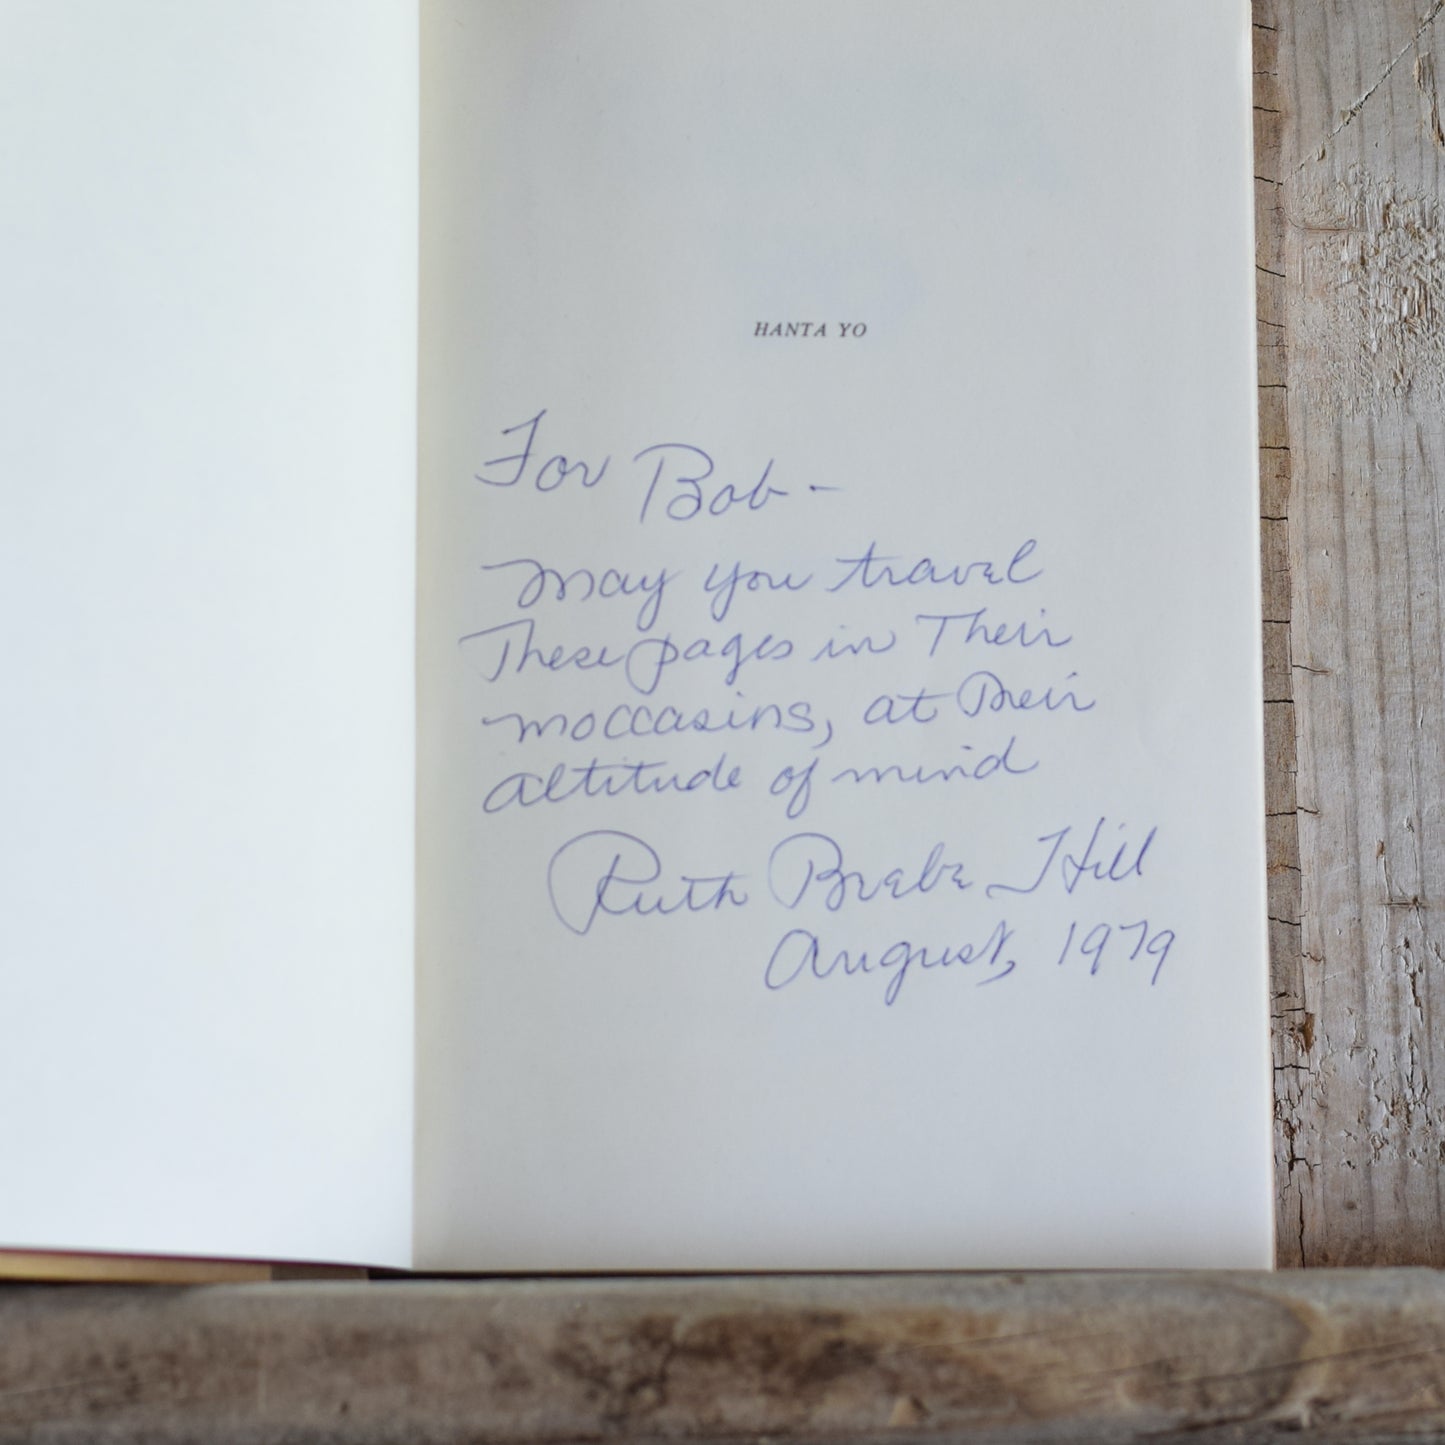 HANTA YO
For Bob -
May you travel
These pages in Their
moccasins, at Their
altitude of mind
Ruth Beebe Hill
August, 1979